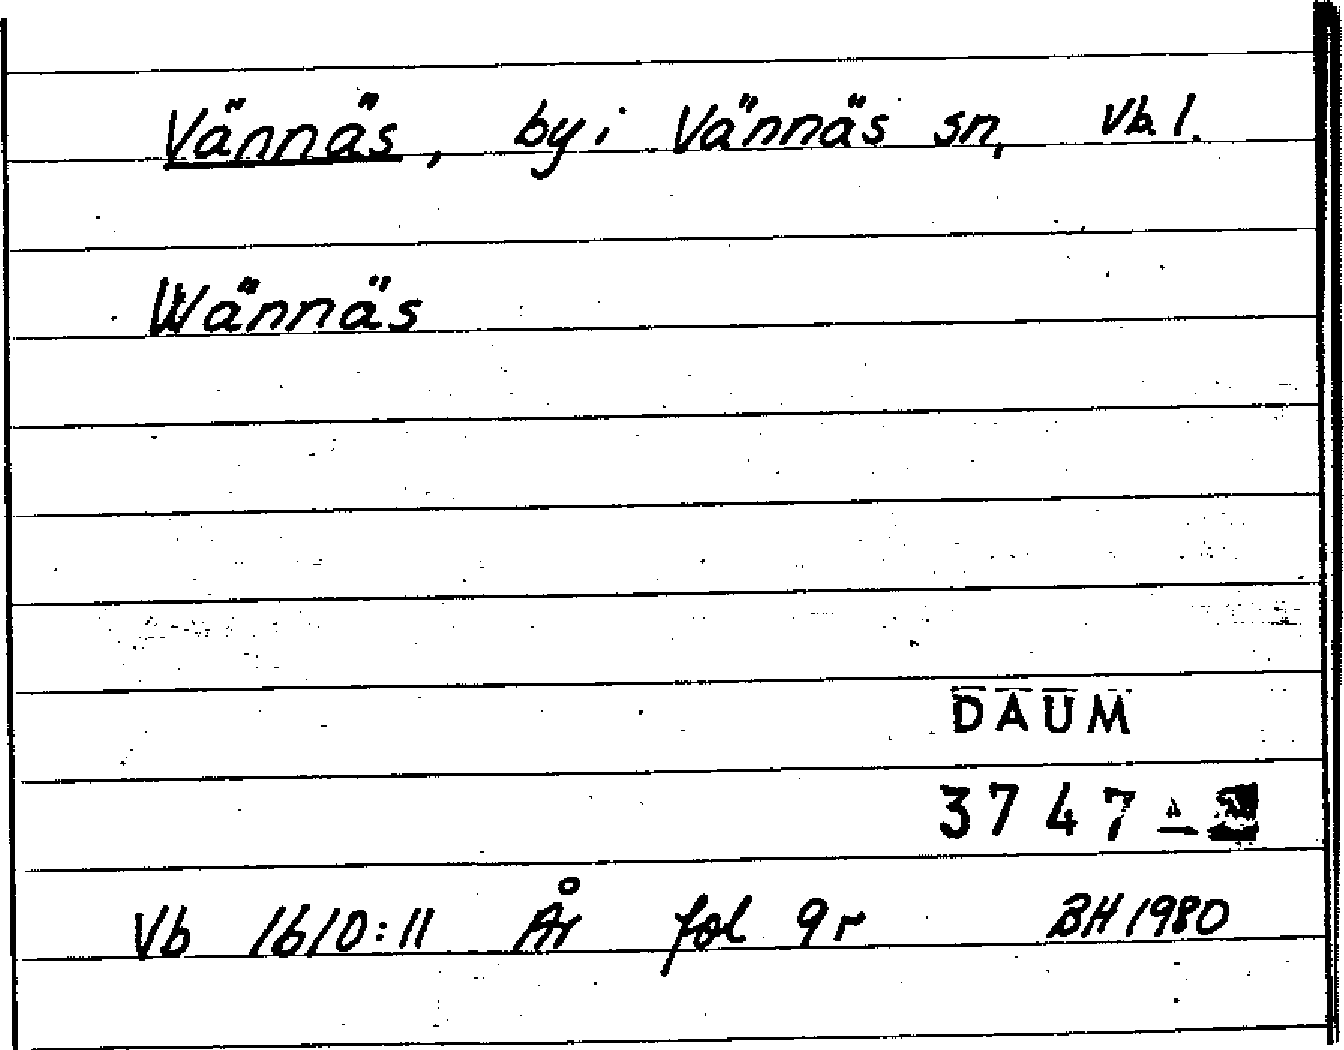 Vännäs, by i Vännäs sn, Vb. l.
Wännäs
DAUM
3747
Vb 1610:11 År fol 9r BH 1980